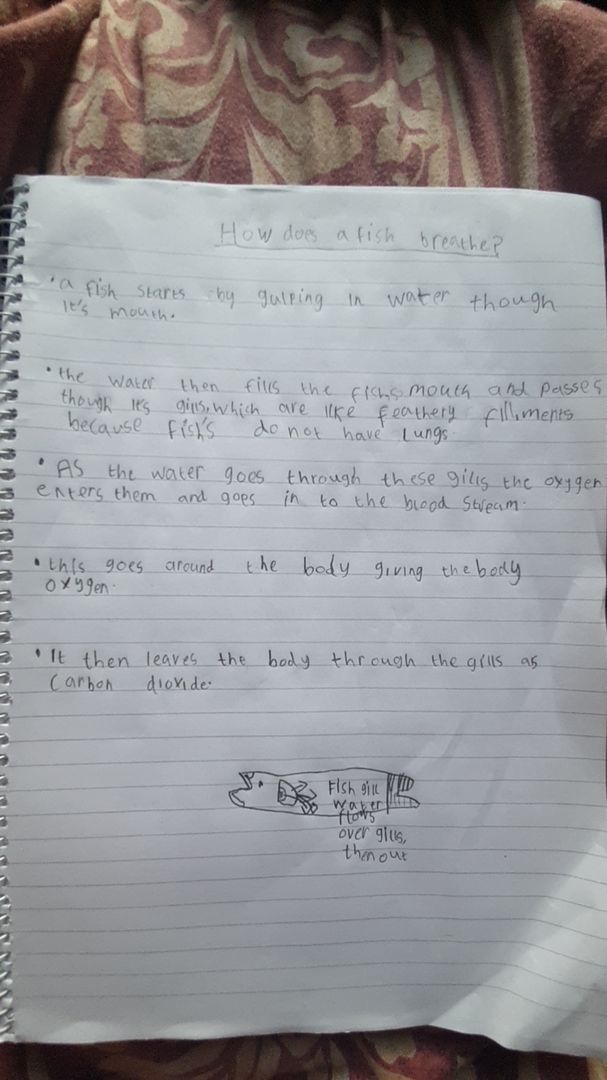 How does a fish breathe?
• a fish starts by gulping in water though
it's mouth.
• the water then fills the fishs mouth and passes
though it's gills, which are like feathery filliments
because fish's do not have lungs.
• As the water goes through these gills the oxygen
enters them and goes in to the blood stream.
• this goes around the body giving the body
oxygen.
• It then leaves the body through the gills as
Carbon dioxide.
Fish gill
water
flows
over gills,
then out